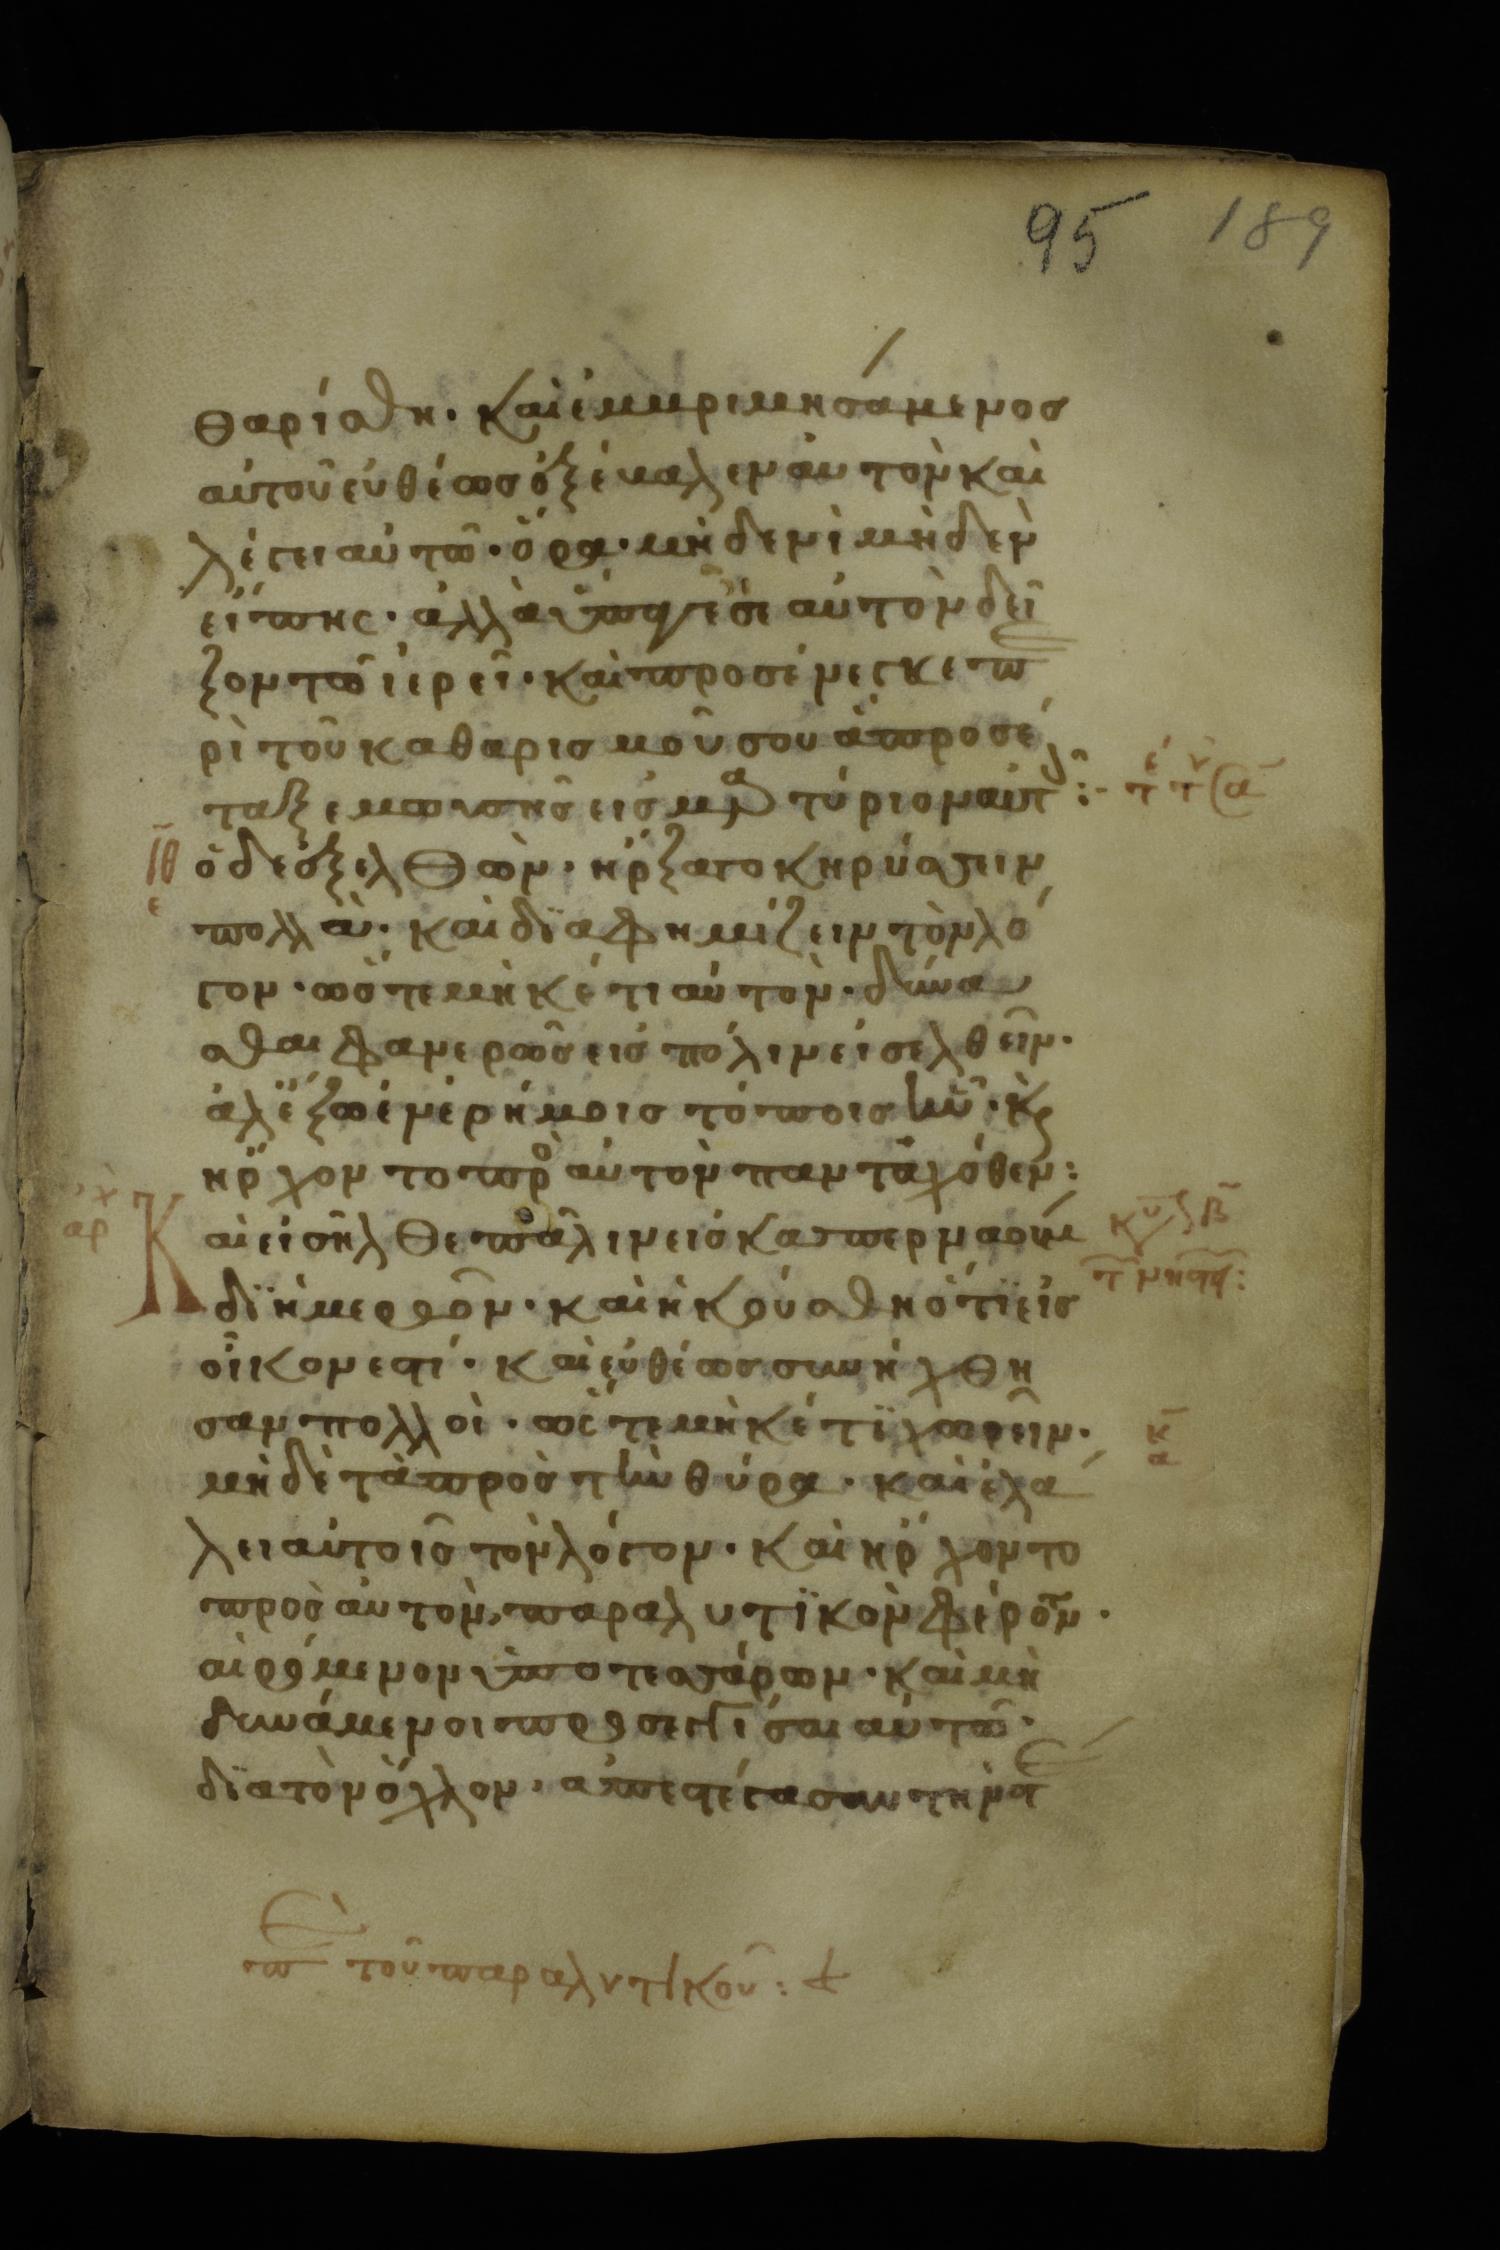 95 189
θαρίσθη· καὶ ἐμβριμησάμενος
αὐτοῦ εὐθέως ἐξέβαλεν αὐτὸν καὶ
λέγει αὐτῶ· ὅρα· μηδενὶ μηδὲν
εἴπης· ἀλλὰ ὕπαγε σεαυτὸν δεῖ
ξον τῶ ἱερεῖ· καὶ προσένεγκε πε
ρὶ τοῦ καθαρισμοῦ σου ἃ προσέ
ταξε μωυσῆς εἰς μαρτύριον αὐτοῖς:-
ιθ
ε
ὁ δὲ ἐξελθὼν· ἤρξατο κηρύσσειν
πολλὰ· καὶ διαφημίζειν τὸν λό
γον· ὥστε μηκέτι αὐτὸν· δύνα
σθαι φανερῶς εἰς πόλιν εἰσελθεῖν·
ἀλλ' ἔξω ἐν ἐρήμοις τόποις ἦν· κ(αὶ)
ἤρχοντο πρὸ(ς) αὐτὸν πανταχόθεν:
αρχ
Καὶ εἰσῆλθε πάλιν εἰς καπερναοὺμ
δϊ ἡμερῶν· καὶ ἠκούσθη ὅτϊ εἰς
οἶκον ἐστί· καὶ εὐθέως συνήχθη
σαν πολλοὶ· ὥστε μηκέτϊ χωρεῖν·
κ
α
μηδὲ τὰ πρὸς τὴν θύρα· καὶ ἐλά
λει αὐτοῖς τὸν λόγον· καὶ ἤρχοντο
πρὸς αὐτὸν, παραλυτϊκὸν φέροντ(ες)·
αἰρόμενον ὑπὸ τεσσάρων· καὶ μὴ
δυνάμενοι προσεγγίσαι αὐτῶ·
δϊὰ τὸν ὄχλον· ἀπεστέγασαν τὴν στέ
πε τοῦ παραλυτικοῦ: